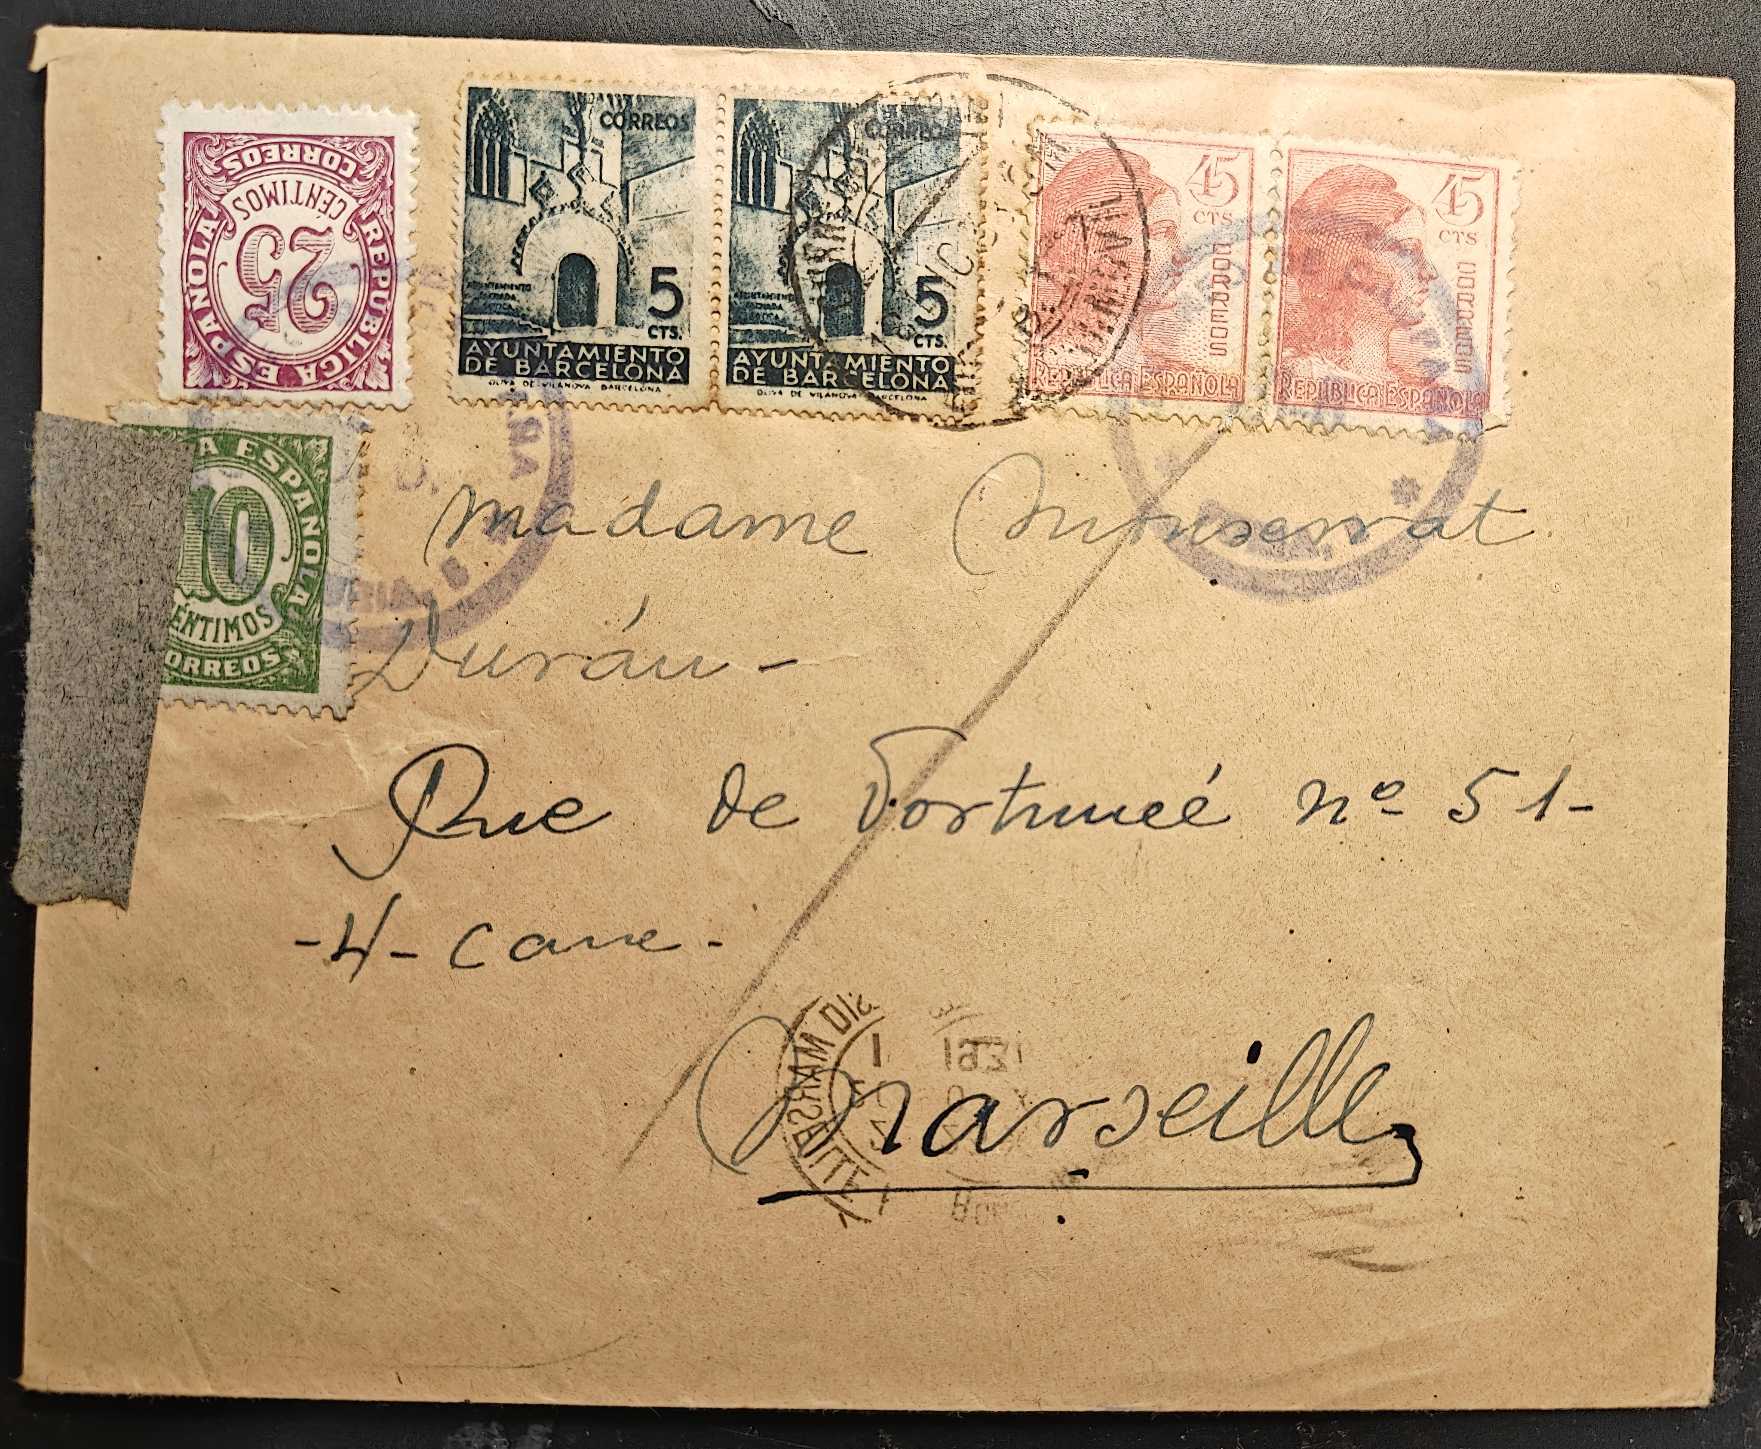 REPUBLICA ESPAÑOLA
CORREOS
25
CÉNTIMOS
CORREOS
5
CTS.
AYUNTAMIENTO
DE BARCELONA
OLIVA DE VILANOVA BARCELONA
CORREOS
5
CTS.
AYUNTAMIENTO
DE BARCELONA
OLIVA DE VILANOVA BARCELONA
45
CTS
CORREOS
REPUBLICA ESPAÑOLA
45
CTS
CORREOS
REPUBLICA ESPAÑOLA
A ESPAÑOLA
10
ÉNTIMOS
ORREOS
Madame Monserrat
Durán -
Rue de Fortuneé nº 51-
-4- Cane.
Marseille
MARSEILLE